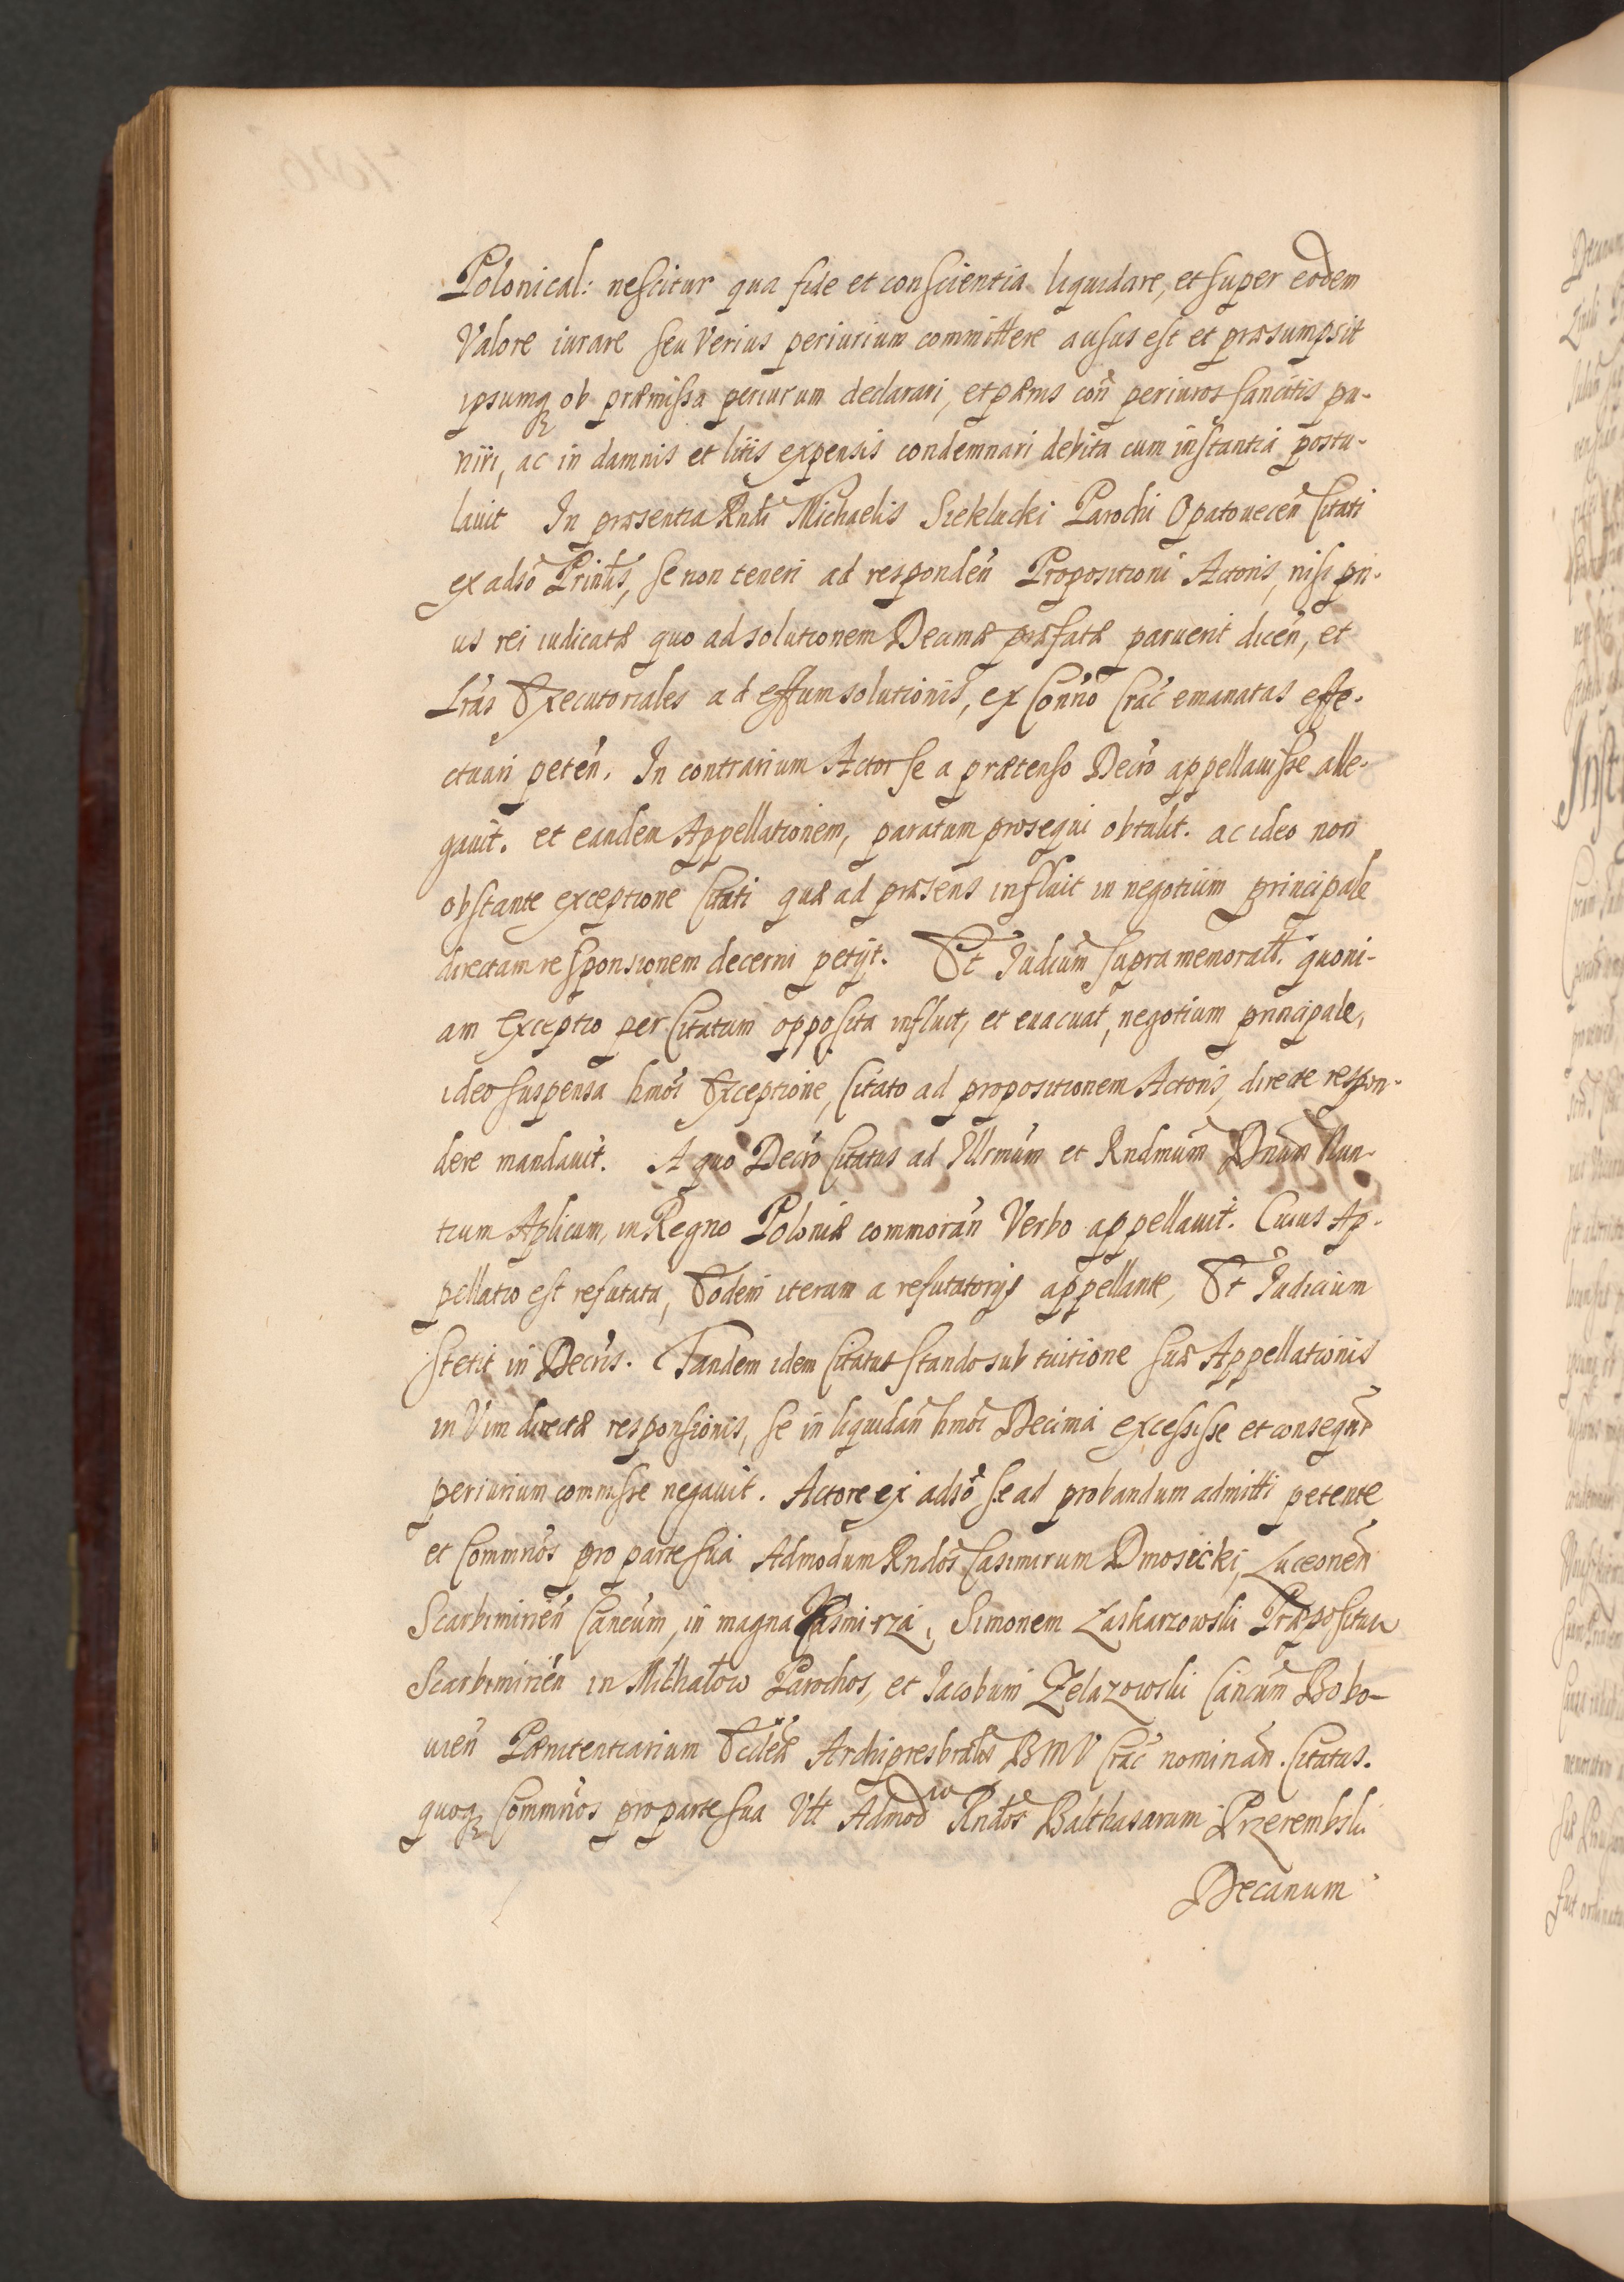 Polonical: nescitur qua fide et conscientia liquidare, et super eodem
Valore iurare seu Verius periurium committere ausus est et præsumpsit
ipsumq ob præmissa periurum declarari, et pænis coñ periuros sancitis pu-
niri, ac in damnis et litis expensis condemnari debita cum instantia postu-
lauit In præsentia Rndi Michaelis Sieklucki Parochi Opatouecen̄ Citati
ex adso Printis, se non teneri ad responden̄ Propositioni Actoris, nisi pri-
us rei iudicatæ quo ad solutionem Decimæ præfatæ paruerit dicen̄, et
Lras Executoriales ad effum solutionis, ex Conno Crac emanatas effe-
ctuari peten̄. In contrarium Actor se a prætenso Decro appellauisse alle-
gauit. et eandem Appellationem, paratum prosequi obtulit. ac ideo non
obstante exceptione Citati quæ ad præsens influit in negotium principale
directam responsionem decerni petijt. Et Iudium supra memoratt. quoni-
am Exceptio per Citatum opposita influit, et euacuat, negotium principale,
ideo suspensa hmoi Exceptione, Citato ad propositionem Actoris, directe respon-
dere mandauit. A quo Decro Citatus ad Illrmum et Rndmum Dnum Nun-
tium Aplicum, in Regno Poloniæ commoran̄ Verbo appellauit. Cuius Ap-
pellatio est refutata, Eodem iterum a refutatorijs appellante, Et Iudicium
stetit in Decris. Tandem idem Citatus stando sub tuitione suæ Appellationis
in Vim directæ responsionis, se in liquidan̄ hmoi Decima excessisse et consequr
periurium commisisse negauit. Actore ex adso se ad probandum admitti petente
et Commnos pro parte sua Admodum Rndos Casimirum Dmosicki, Luceonen̄
Scarbimirien̄ Cancum, in magna Kasmirza, Simonem Zasharzowski Præpositum
Scarbimirien̄ in Michałow Parochos, et Iacobum Zelazowski Cancum Bobo-
uien̄ Pænitentiarium Eccleæ Archipresbralis BMV Crac nominan̄. Citatus.
quoq Commnos pro parte sua Vtt Admod Rndos Balthasarum Przerembski
Decanum